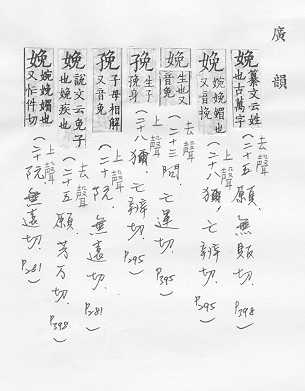 廣韻
娩 纂文云姓也古萬字
去聲(二十五願，無販切．P398)
娩 婉娩媚也又音挽
上聲(二十八獮，亡辨切．P295)
娩 生也又音免
去聲(二十三問，亡運切．P395)
㝃 生子㝃身
上聲(二十八獮，亡辨切．P295)
㝃 子母相解又音免
上聲(二十阮，無遠切．P281)
娩 說文云兔子也娩疾也
去聲(二十五願，芳万切．P398)
娩 婉娩媚也又忙件切
上聲(二十阮，無遠切．P281)